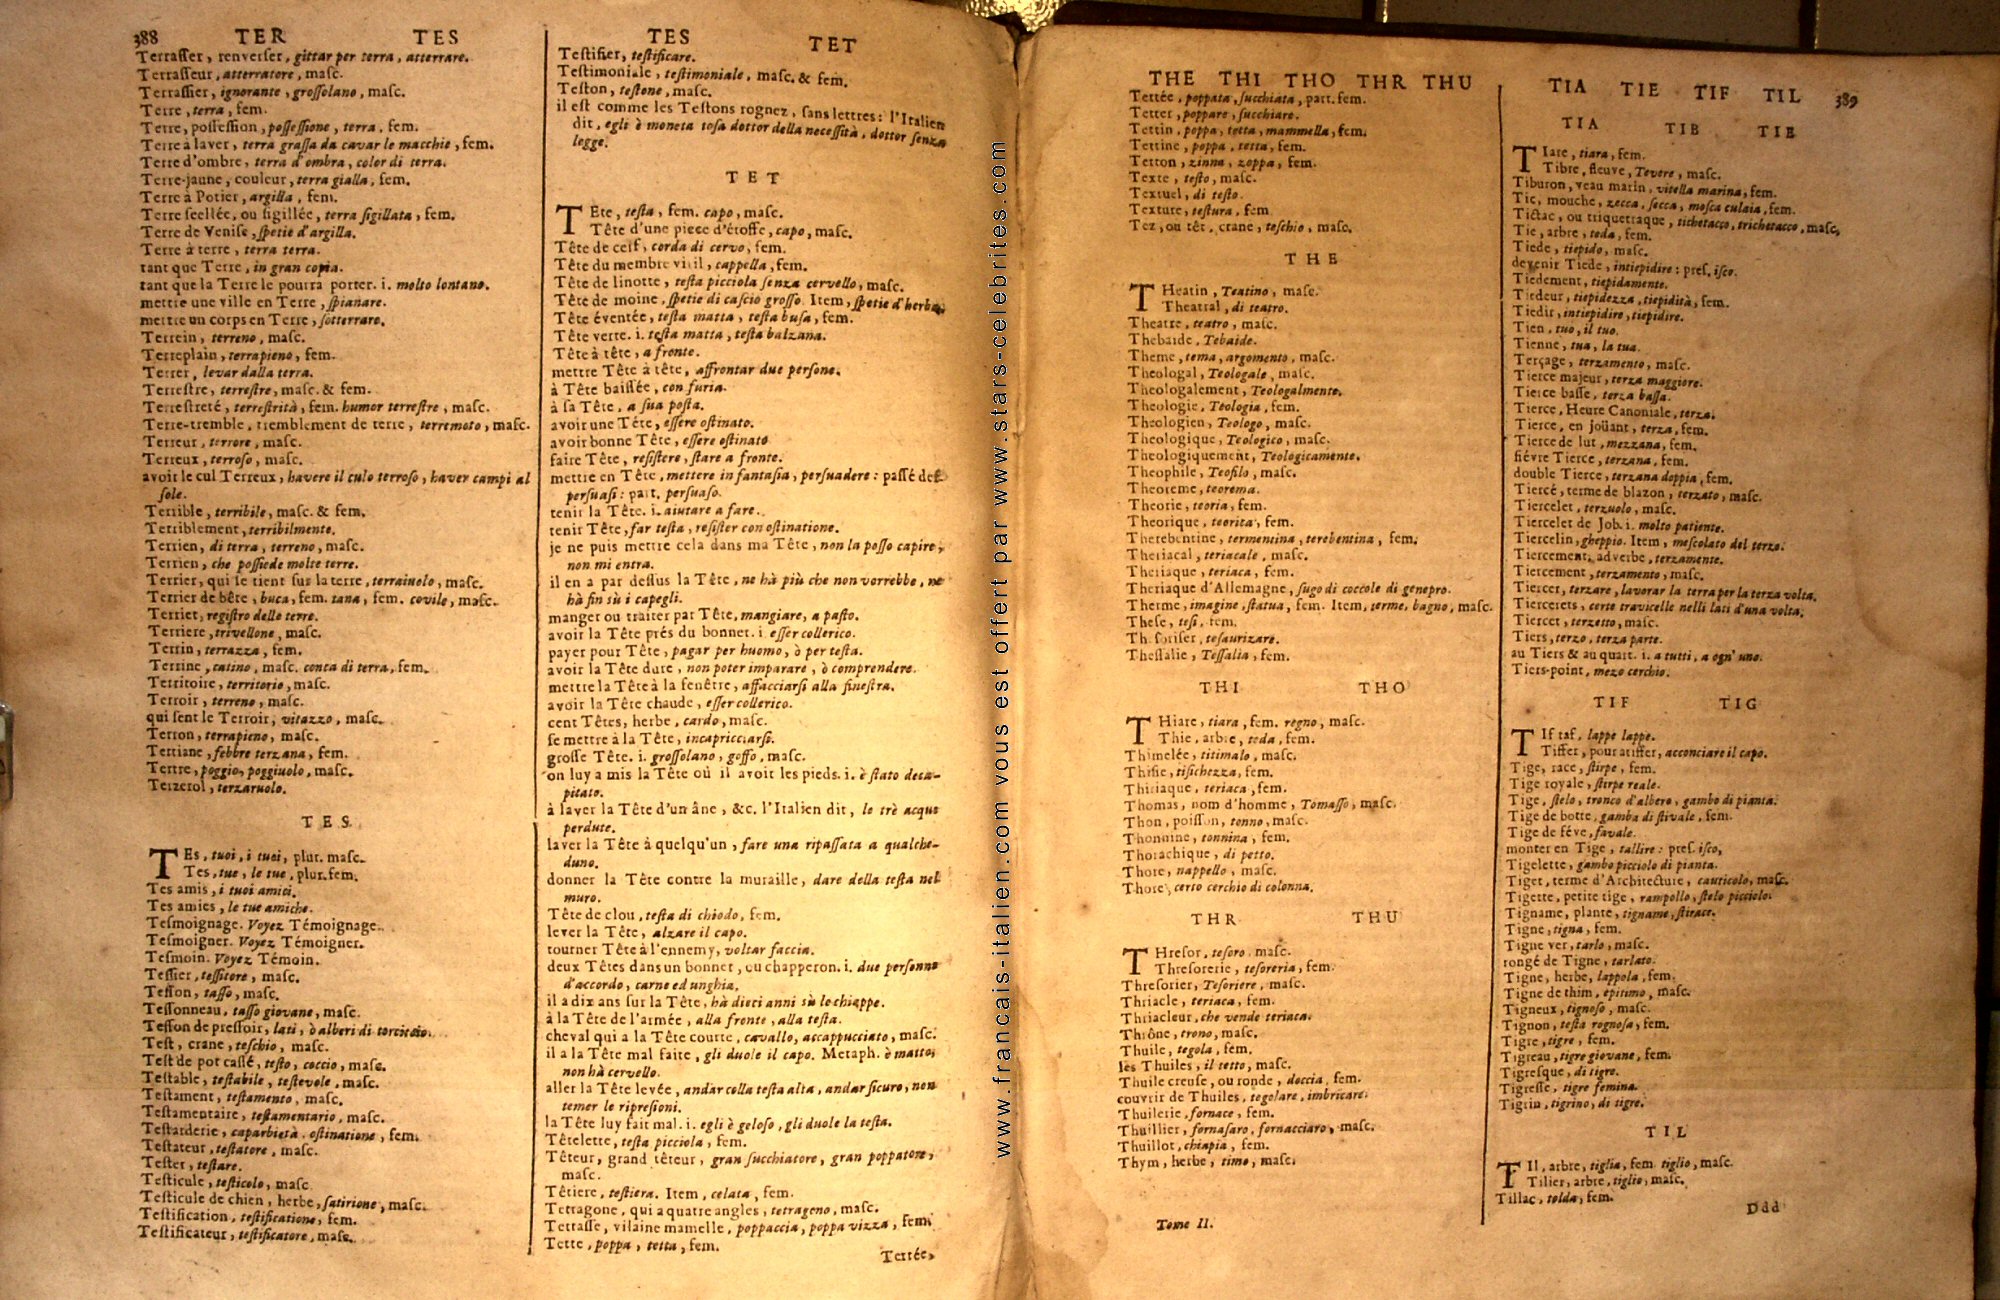 388 TER TES
Terrasser, renverser, gittar per terra, atterrare.
Terrasseur, atterratore, masc.
Terrassier, ignorante, grossolano, masc.
Terre, terra, fem.
Terre, possession, possessione, terra, fem.
Terre à laver, terra grassa da cavar le macchie, fem.
Terre d'ombre, terra d'ombra, color di terra.
Terre-jaune, couleur, terra gialla, fem.
Terre à Potier, argilla, fem.
Terre seellée, ou sigillée, terra sigillata, fem.
Terre de Venise, spetie d'argilla.
Terre à terre, terra terra.
tant que Terre, in gran copia.
tant que la Terre le pourra porter. i. molto lontano.
mettre une ville en Terre, spianare.
mettre un corps en Terre, sotterrare.
Terrein, terreno, masc.
Terreplain, terrapieno, fem.
Terrer, levar dalla terra.
Terrestre, terrestre, masc. & fem.
Terrestreté, terrestrità, fem. humor terrestre, masc.
Terre-tremble, tremblement de terre, terremoto, masc.
Terreur, terrore, masc.
Terreux, terroso, masc.
avoir le cul Terreux, havere il culo terroso, haver campi al
sole.
Terrible, terribile, masc. & fem.
Terriblement, terribilmente.
Terrien, di terra, terreno, masc.
Terrien, che possiede molte terre.
Terrier, qui se tient sur la terre, terraiuolo, masc.
Terrier de bête, buca, fem. tana, fem. covile, masc.
Terrier, registro delle terre.
Terriere, trivellone, masc.
Terrin, terrazza, fem.
Terrine, catino, masc. conca di terra, fem.
Territoire, territorio, masc.
Terroir, terreno, masc.
qui sent le Terroir, vitazzo, masc.
Terron, terrapieno, masc.
Tertiane, febbre terzana, fem.
Tertre, poggio, poggiuolo, masc.
Terzerol, terzaruolo.
TES
TEs, tuoi, i tuoi, plur. masc.
Tes, tue, le tue, plur. fem.
Tes amis, i tuoi amici.
Tes amies, le tue amiche.
Tesmoignage. Voyez Témoignage.
Tesmoigner. Voyez Témoigner.
Tesmoin. Voyez Témoin.
Tessier, tessitore, masc.
Tesson, tasso, masc.
Tessonneau, tasso giovane, masc.
Tesson de pressoir, lati, ò alberi di torcitoio.
Test, crane, teschio, masc.
Test de pot cassé, testo, coccio, masc.
Testable, testabile, testevole, masc.
Testament, testamento, masc.
Testamentaire, testamentario, masc.
Testarderie, caparbietà, ostinatione, fem.
Testateur, testatore, masc.
Tester, testare.
Testicule, testicolo, masc.
Testicule de chien, herbe, satirione, masc.
Testification, testificatione, fem.
Testificateur, testificatore, masc.
TES TET
Testifier, testificare.
Testimoniale, testimoniale, masc. & fem.
Teston, testone, masc.
il est comme les Testons rognez, sans lettres: l'Italien
dit, egli è moneta tosa dottor della necessità, dottor senza
legge.
TET
TEte, testa, fem. capo, masc.
Tête d'une piece d'étoffe, capo, masc.
Tête de cerf, corda di cervo, fem.
Tête du membre viril, cappella, fem.
Tête de linotte, testa picciola senza cervello, masc.
Tête de moine, spetie di cascio grosso. Item, spetie d'herba.
Tête éventée, testa matta, testa busa, fem.
Tête verte. i. testa matta, testa balzana.
Tête à tête, a fronte.
mettre Tête à tête, affrontar due persone.
à Tête baissée, con furia.
à sa Tête, a sua posta.
avoir une Tête, essere ostinato.
avoir bonne Tête, essere ostinato
faire Tête, resistere, stare a fronte.
mettre en Tête, mettere in fantasia, persuadere: passé def.
persuasi: part. persuaso.
tenir la Tête. i. aiutare a fare.
tenir Tête, far testa, resister con ostinatione.
je ne puis mettre cela dans ma Tête, non la posso capire,
non mi entra.
il en a par dessus la Tête, ne hà più che non vorrebbe, ne
hà fin sù i capegli.
manger ou traiter par Tête, mangiare, a pasto.
avoir la Tête prés du bonnet. i. esser collerico.
payer pour Tête, pagar per huomo, ò per testa.
avoir la Tête dure, non poter imparare, ò comprendere.
mettre la Tête à la fenêtre, affacciarsi alla finestra.
avoir la Tête chaude, esser collerico.
cent Têtes, herbe, cardo, masc.
se mettre à la Tête, incapricciarsi.
grosse Tête. i. grossolano, goffo, masc.
on luy a mis la Tête où il avoit les pieds. i. è stato deca-
pitato.
à laver la Tête d'un âne, &c. l'Italien dit, le trè acque
perdute.
laver la Tête à quelqu'un, fare una ripassata a qualche-
duno.
donner la Tête contre la muraille, dare della testa nel
muro.
Tête de clou, testa di chiodo, fem.
lever la Tête, alzare il capo.
tourner Tête à l'ennemy, voltar faccia.
deux Têtes dans un bonnet, ou chapperon. i. due persone
d'accordo, carne ed unghia.
il a dix ans sur la Tête, hà dieci anni sù le chiappe.
à la Tête de l'armée, alla fronte, alla testa.
cheval qui a la Tête courte, cavallo, accappucciato, masc.
il a la Tête mal faite, gli duole il capo. Metaph. è matto,
non hà cervello.
aller la Tête levée, andar colla testa alta, andar sicuro, non
temer le ripresioni.
la Tête luy fait mal. i. egli è geloso, gli duole la testa.
Têtelette, testa picciola, fem.
Têteur, grand têteur, gran succhiatore, gran poppatore,
masc.
Têtiere, testiera. Item, celata, fem.
Tetragone, qui a quatre angles, tetragono, masc.
Tettasse, vilaine mamelle, poppaccia, poppa vizza, fem.
Tette, poppa, tetta, fem.
Tettée,
www.francais-italien.com vous est offert par www.stars-celebrites.com
THE THI THO THR THU
Tettée, poppata, succhiata, part. fem.
Tetter, poppare, succhiare.
Tettin, poppa, tetta, mammella, fem.
Tettine, poppa, tetta, fem.
Tetton, zinna, zoppa, fem.
Texte, testo, masc.
Textuel, di testo.
Texture, testura, fem
Tez, ou têt, crane, teschio, masc.
THE
THeatin, Teatino, masc.
Theatral, di teatro.
Theatre, teatro, masc.
Thebaide, Tebaide.
Theme, tema, argomento, masc.
Theologal, Teologale, masc.
Theologalement, Teologalmente.
Theologie, Teologia, fem.
Theologien, Teologo, masc.
Theologique, Teologico, masc.
Theologiquement, Teologicamente.
Theophile, Teofilo, masc.
Theoreme, teorema.
Theorie, teoria, fem.
Theorique, teorita, fem.
Therebentine, termentina, terebentina, fem.
Theriacal, teriacale, masc.
Theriaque, teriaca, fem.
Theriaque d'Allemagne, sugo di coccole di genepro.
Therme, imagine, statua, fem. Item, terme, bagno, masc.
These, tesi, fem.
Thesoriser, tesaurizare.
Thessalie, Tessalia, fem.
THI THO
THiare, tiara, fem. regno, masc.
Thie, arbre, teda, fem.
Thimelée, titimalo, masc.
Thisie, tisichezza, fem.
Thiriaque, teriaca, fem.
Thomas, nom d'homme, Tomasso, masc.
Thon, poisson, tonno, masc.
Thonnine, tonnina, fem.
Thorachique, di petto.
Thore, nappello, masc.
Thore, certo cerchio di colonna.
THR THU
THresor, tesoro masc.
Thresorerie, tesoreria, fem.
Thresorier, Tesoriere, masc.
Thriacle, teriaca, fem.
Thriacleur, che vende teriaca.
Thrône, trono, masc.
Thuile, tegola, fem.
les Thuiles, il tetto, masc.
Thuile creuse, ou ronde, doccia, fem.
couvrir de Thuiles, tegolare, imbricare.
Thuilerie, fornace, fem.
Thuillier, fornasaro, fornacciaro, masc.
Thuillot, chiapia, fem.
Thym, herbe, timo, masc.
Tome II.
TIA TIE TIF TIL 389
TIA TIB TIE
TIare, tiara, fem.
Tibre, fleuve, Tevere, masc.
Tiburon, veau marin, vitella marina, fem.
Tic, mouche, zecca, secca, mosca culaia, fem.
Tictac, ou triquetraque, tichetacco, trichetacco, masc.
Tie, arbre, teda, fem.
Tiede, tiepido, masc.
devenir Tiede, intiepidire: pres. isco.
Tiedement, tiepidamente.
Tiedeur, tiepidezza, tiepidità, fem.
Tiedir, intiepidire, tiepidire.
Tien, tuo, il tuo.
Tienne, tua, la tua.
Terçage, terzamento, masc.
Tierce majeur, terza maggiore.
Tierce basse, terza bassa.
Tierce, Heure Canoniale, terza.
Tierce, en joüant, terza, fem.
Tierce de lut, mezzana, fem.
fiévre Tierce, terzana, fem.
double Tierce, terzana doppia, fem.
Tiercé, terme de blazon, terzato, masc.
Tiercelet, terzuolo, masc.
Tiercelet de Job. i. molto patiente.
Tiercelin, gheppio. Item, mescolato del terzo.
Tiercement, adverbe, terzamente.
Tiercement, terzamento, masc.
Tiercer, terzare, lavorar la terra per la terza volta.
Tiercerets, certe travicelle nelli lati d'una volta.
Tiercet, terzetto, masc.
Tiers, terzo, terza parte.
au Tiers & au quart. i. a tutti, a ogn' uno.
Tiers-point, mezo cerchio.
TIF TIG
TIf taf, lappe lappe.
Tiffer, pour atiffer, acconciare il capo.
Tige, race, stirpe, fem.
Tige royale, stirpe reale.
Tige, stelo, tronco d'albero, gambo di pianta.
Tige de botte, gamba di stivale, fem.
Tige de féve, favale.
monter en Tige, tallire: pres. isco,
Tigelette, gambo picciolo di pianta.
Tiget, terme d'Architecture, cauticolo, masc.
Tigette, petite tige, rampollo, stelo picciolo.
Tigname, plante, tigname, stirace.
Tigne, tigna, fem.
Tigne ver, tarlo, masc.
rongé de Tigne, tarlato.
Tigne, herbe, lappola, fem.
Tigne de thim, epitimo, masc.
Tigneux, tignoso, masc.
Tignon, testa rognosa, fem.
Tigre, tigre, fem.
Tigreau, tigre giovane, fem.
Tigresque, di tigre.
Tigresse, tigre femina.
Tigrin, tigrino, di tigre.
TIL
TIl, arbre, tiglia, fem tiglio, masc.
Tilier, arbre, tiglio, masc.
Tillac, tolda, fem.
Ddd